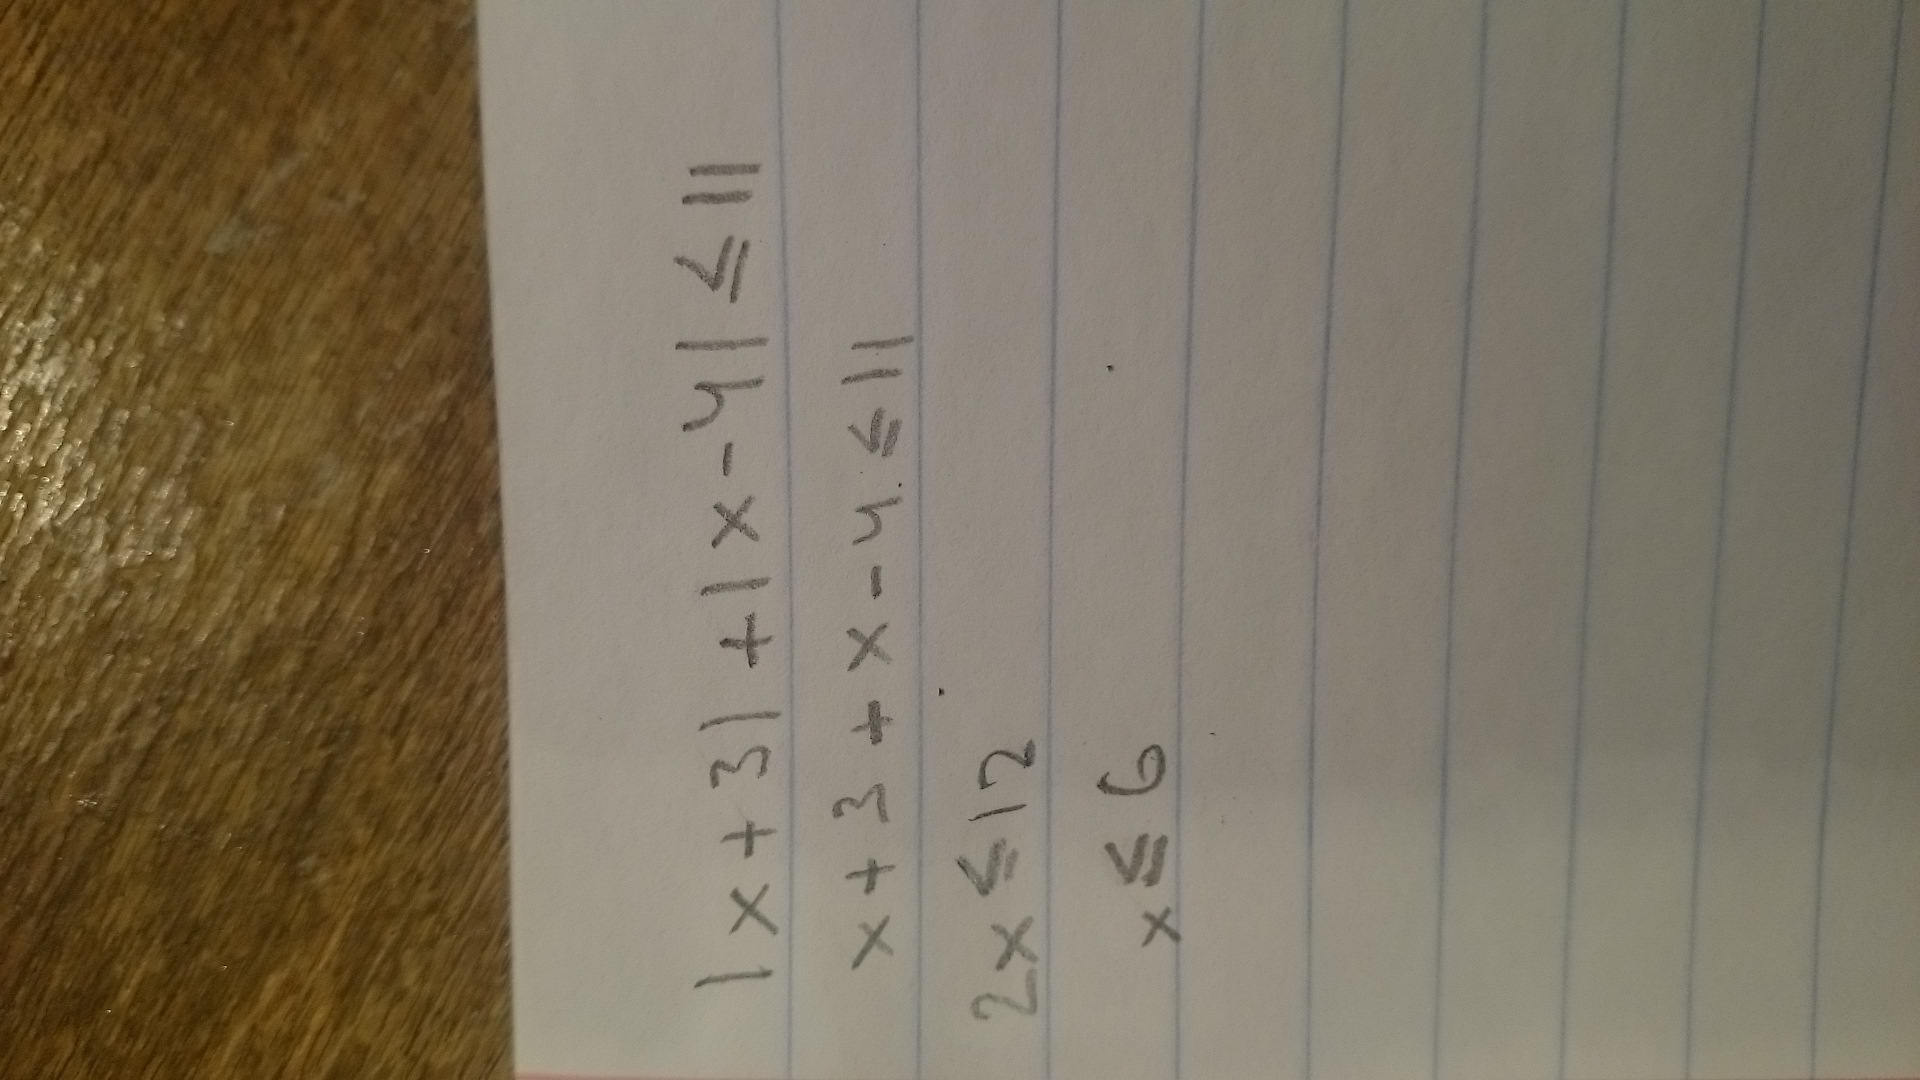 |x+3|+|x-4|≤11
x+3+x-4≤11
2x≤12
x≤6